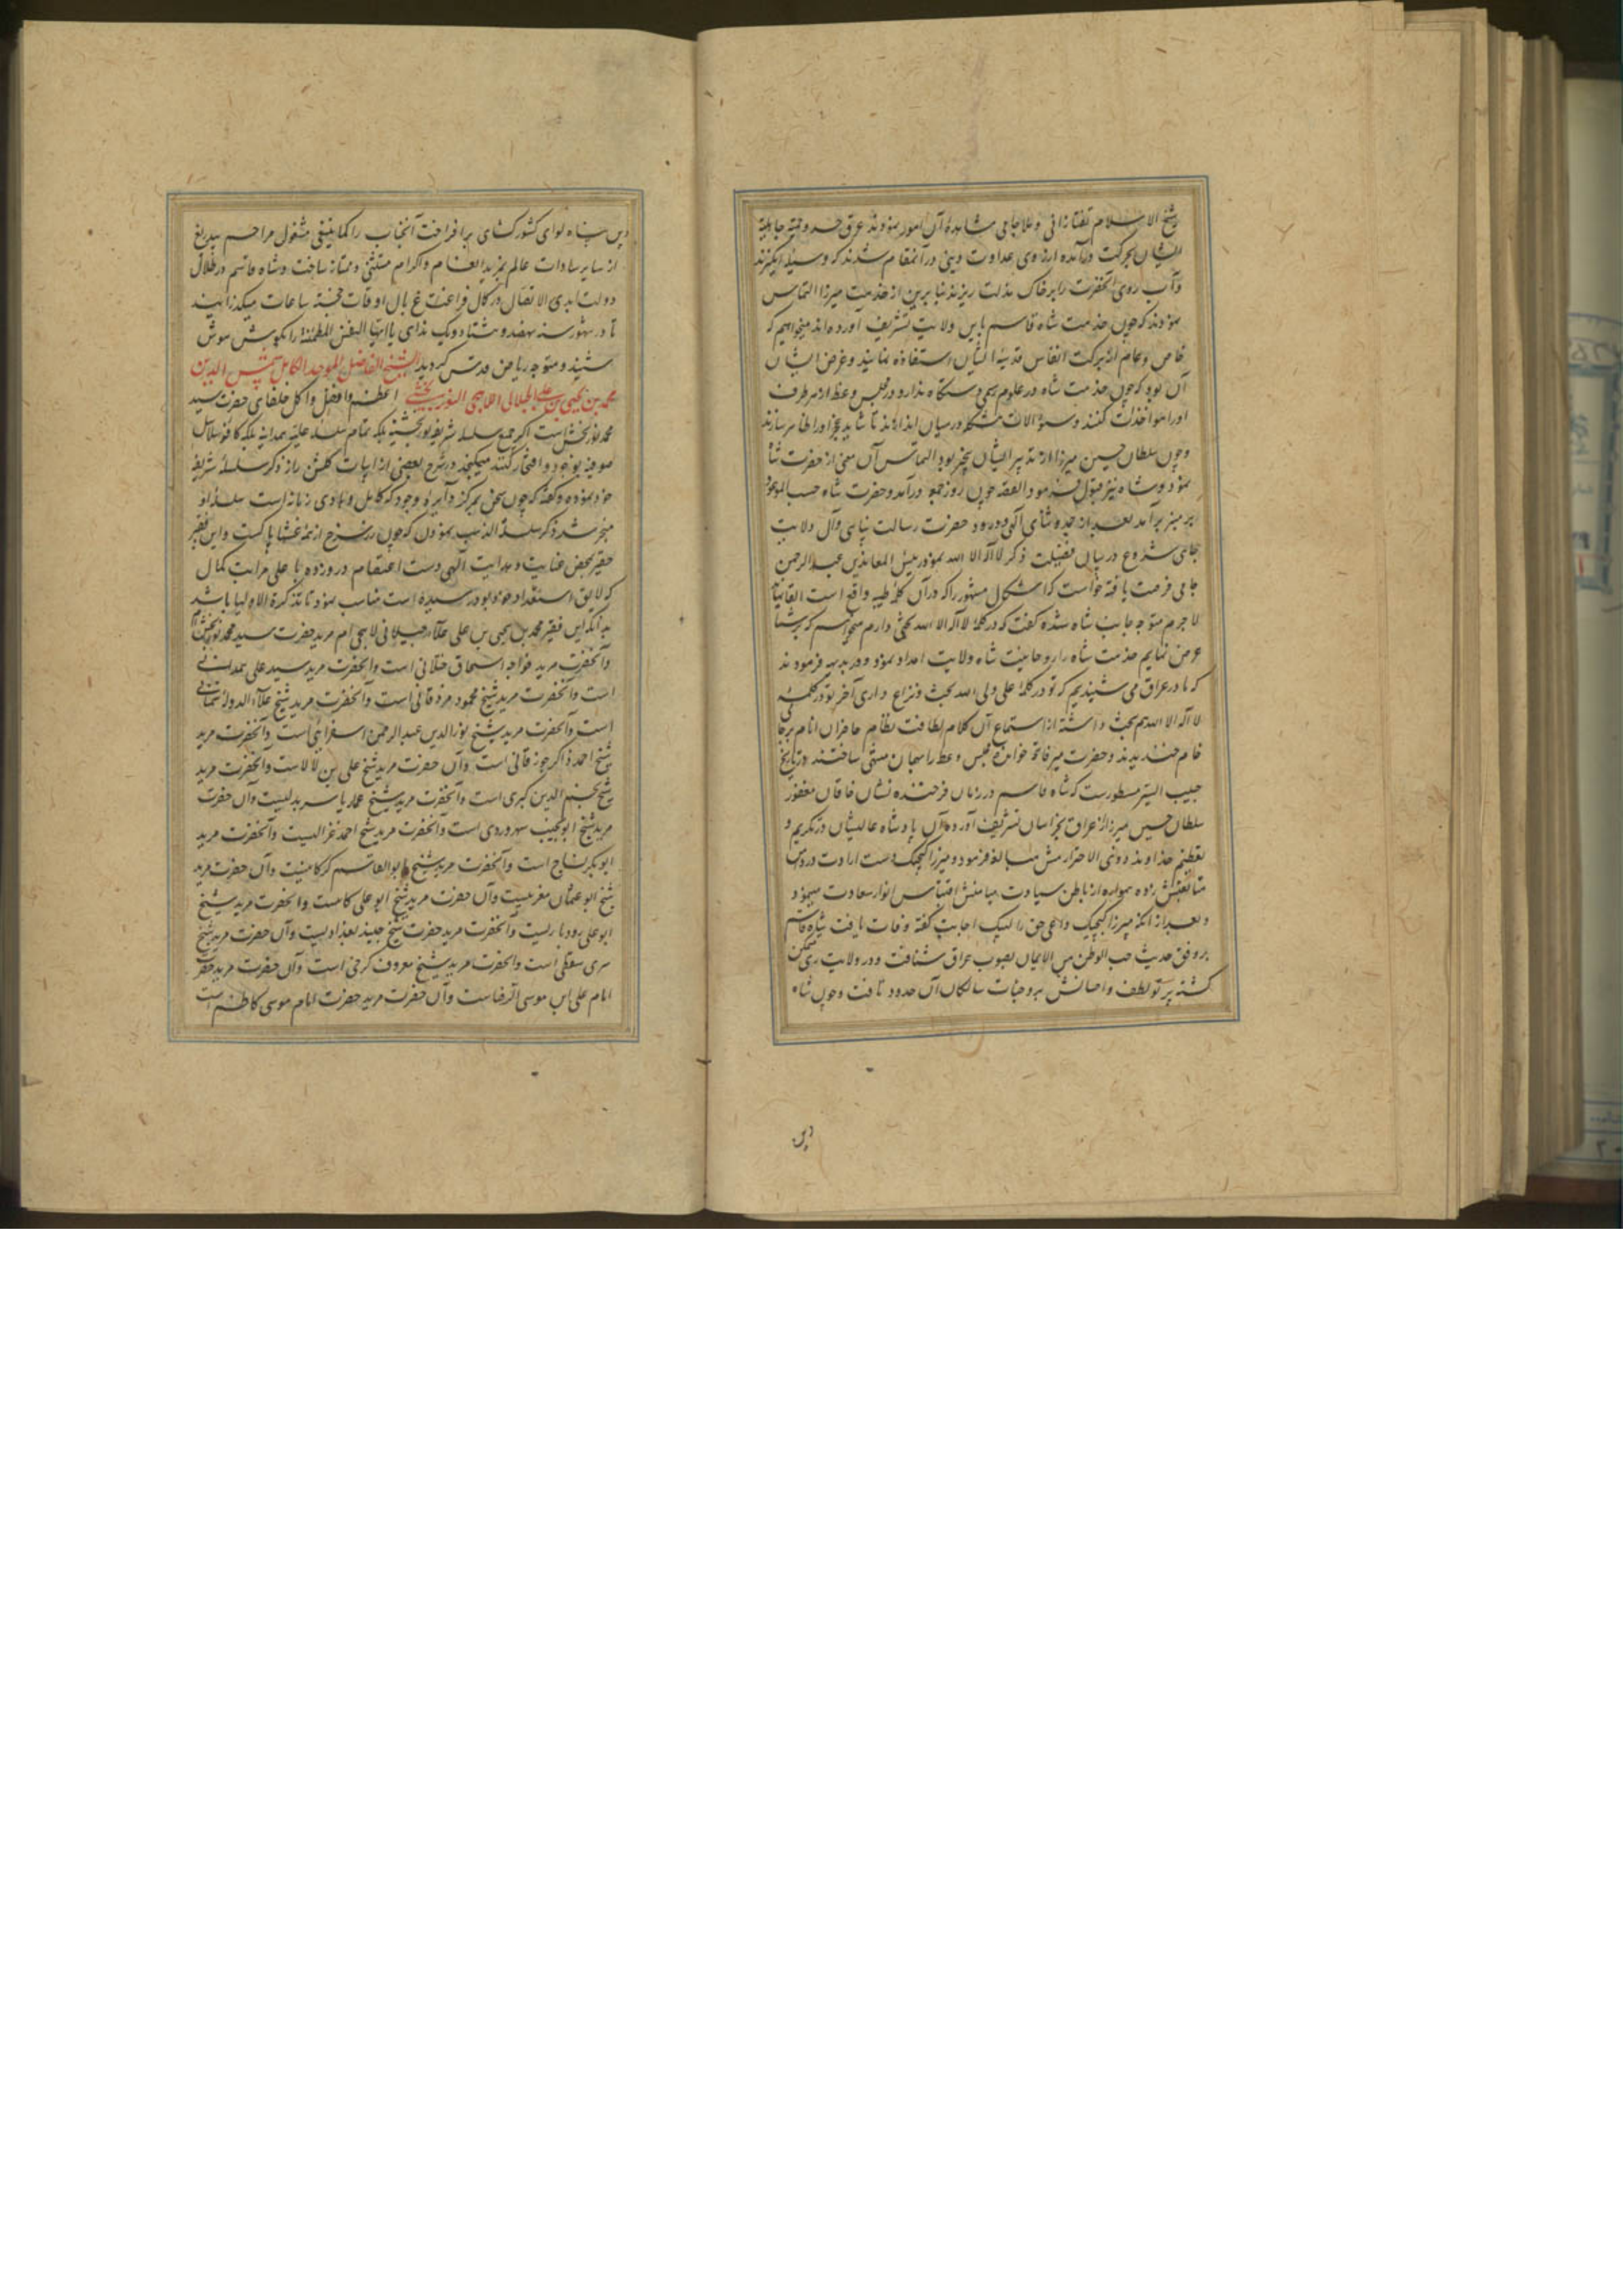 شیخ الاسلام تفتازانی و ملا جامی مشاهدهٔ آن امور نمودند عرق حسد و حمیت جاهلیة
ایشان بحرکت درآمده از روی عداوت دینی در آنمقام شدند که وسیلهٔ انگیزند
و آب روی آنحضرت را بر خاک مذلت ریزند بنابرین از خدمت میرزا التماس
نمودند که چون خدمت شاه قاسم باین ولایت تشریف آورده‌اند میخواهیم که
خاص و عام از برکت انفاس قدسیهٔ ایشان استفاده نمایند و غرض ایشان
آن بود که چون خدمت شاه در علوم رسمی دستگاه ندارد در مجلس وعظ از هر طرف
او را مواخذت کنند و سؤالات مشکله در میان اندازند تا شاید عجز او را ظاهر سازند
و چون سلطان حسین میرزا از تدبیر ایشان بیخبر بود التماس آن معنی از حضرت شاه
نمود و شاه نیز قبول فرمود القصه چون روز جمعه درآمد و حضرت شاه حسب الموعود
بر منبر برآمد بعد از حمد و ثنای آلهی و درود حضرت رسالت پناهی و آل ولایت
جاهی شروع در بیان فضیلت ذکر لا اله الا الله نمود رئیس المعاندین عبد الرحمن
جامی فرصت یافته خواست که اشکال مشهور را که در آن کلمهٔ طیبه واقع است القا نماید
لاجرم متوجه جانب شاه شده گفت که در کلمهٔ لا اله الا الله بحثی دارم میخواهم که بر شما
عرض نمایم خدمت شاه را روحانیت شاه ولایت امداد نمود و در بدیهه فرمودند
که ما در عراق می شنیدیم که تو در کلمهٔ علی ولی الله بحث و نزاع داری آخر تو در کلمهٔ
لا اله الا الله هم بحث داشتهٔ از استماع آن کلام لطافت نظام حاضران انام بر جامی
خام خندیدند و حضرت میر فاتحه خوانده مجلس وعظ را همان منتهی ساختند در تاریخ
حبیب السیر مسطورست که شاه قاسم در زمان فرخنده نشان خاقان مغفور
سلطان حسین میرزا از عراق بخراسان تشریف آورده آن پادشاه عالیشان در تکریم و
تعظیم خداوند ذوی الاحترامش مبالغه فرمود و میرزا کیچیک دست ارادت در دامن
متابعتش زده همواره از باطن سیادت میامنش اقتباس انوار سعادت مینمود و
بعد از آنکه میرزا کیچیک داعی حق را لبیک اجابت گفته وفات یافت شاه قاسم
بر وفق حدیث حب الوطن من الایمان بصوب عراق شتافت و در ولایت ری متمکن
گشته پرتو لطف و احسانش بر وجنات ساکنان آن حدود تافت و چون شاه
دین
دین پناه لوای کشورکشای برافراخت آنجناب را کما ینبغی مشمول مراحم بیدریغ
از سایر سادات عالم بمزید انعام و اکرام مستثنی و ممتاز ساخت و شاه قاسم در ظلال
دولت ابدی الاتصال در کمال فراغت بال اوقات خجسته ساعات میگذرانید
تا در شهور سنه نهصد و هشتاد و یک ندای یا ایتها النفس المطمئنة را بگوش هوش
شنید و متوجه ریاض قدس گردید الشیخ الفاضل الموحد الکامل شمس الدین
محمد بن یحیی بن علی الجیلانی اللاهجی النوربخشی اعظم و افضل و اکمل خلفای حضرت سید
محمد نوربخش است اگر جمیع سلسلهٔ شریفهٔ نوربخشیه بلکه تمام سلسلهٔ علیهٔ همدانیه بلکه کافهٔ سلاسل
صوفیه بوجود او افتخار کنند میگنجد در شرح بعضی از ابیات گلشن راز ذکر سلسلهٔ شریفهٔ
خود نموده و گفته که چون سخن بمرکز دایرهٔ وجود که کامل و هادی زمانه است سلسلهٔ او
منجر شد ذکر سلسلة الذهب نمودن که چون زر سرخ از همه غشها پاکست و این فقیر
حقیر بمحض عنایت و هدایت آلهی دست اعتصام در و زده باعلی مراتب کمال
که لایق استعداد خود بود رسیده است مناسب نمود تا تذکرة الاولیا باشد
بدانکه این فقیر محمد بن یحیی بن علی جیلانی لاهجی ام مرید حضرت سید محمد نوربخش ام
و آنحضرت مرید خواجه اسحاق ختلانی است و آنحضرت مرید سید علی همدانی
است و آنحضرت مرید شیخ محمود مزدقانی است و آنحضرت مرید شیخ علاء الدوله سمنانی
است و آنحضرت مرید شیخ نور الدین عبد الرحمن اسفراینی است و آنحضرت مرید
شیخ احمد ذاکر جوزقانی است و آن حضرت مرید شیخ علی بن لالا ست و آنحضرت مرید
شیخ نجم الدین کبری است و آنحضرت مرید شیخ عمار یاسر بدلیسیت و آن حضرت
مرید شیخ ابو نجیب سهروردی است و آنحضرت مرید شیخ احمد غزالیست و آنحضرت مرید
ابو بکر نساج است و آنحضرت مرید شیخ ابو القاسم کرکانیست و آن حضرت مرید
شیخ ابو عثمان مغربیست و آن حضرت مرید شیخ ابو علی کاتبست و آنحضرت مرید شیخ
ابو علی رودباریست و آنحضرت مرید حضرت شیخ جنید بغدادیست و آن حضرت مرید شیخ
سری سقطی است و آنحضرت مرید شیخ معروف کرخی است و آن حضرت مرید حضرت
امام علی ابن موسی الرضاست و آن حضرت مرید حضرت امام موسی کاظم است